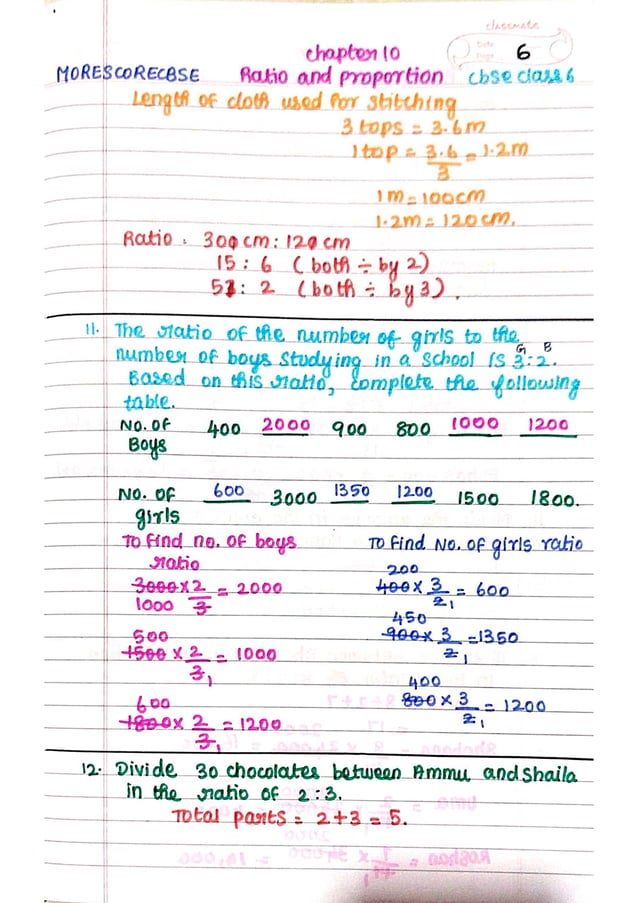 classmate
Date
Page
6
chapter 10
MORESCORECBSE Ratio and proportion cbse class 6
Length of cloth used for stitching
3 tops = 3.6m
1 top = 3.6/3 = 1.2m
1m = 100cm
1.2m = 120cm.
Ratio : 300cm : 120cm
15 : 6 (both ÷ by 2)
5 : 2 (both ÷ by 3).
11. The ratio of the number of girls to the
G B
number of boys studying in a school is 3:2.
Based on this ratio, complete the following
table.
No. of Boys 400 2000 900 800 1000 1200
No. of girls 600 3000 1350 1200 1500 1800.
To find no. of boys ratio
To find No. of girls ratio
3000 × 2/3 = 2000
1000
200
400 × 3/2 1 = 600
500
1500 × 2/3 1 = 1000
450
900 × 3/2 1 = 1350
600
1800 × 2/3 1 = 1200
400
800 × 3/2 1 = 1200
12. Divide 30 chocolates between Ammu and Shaila
in the ratio of 2:3.
Total parts = 2+3 = 5.